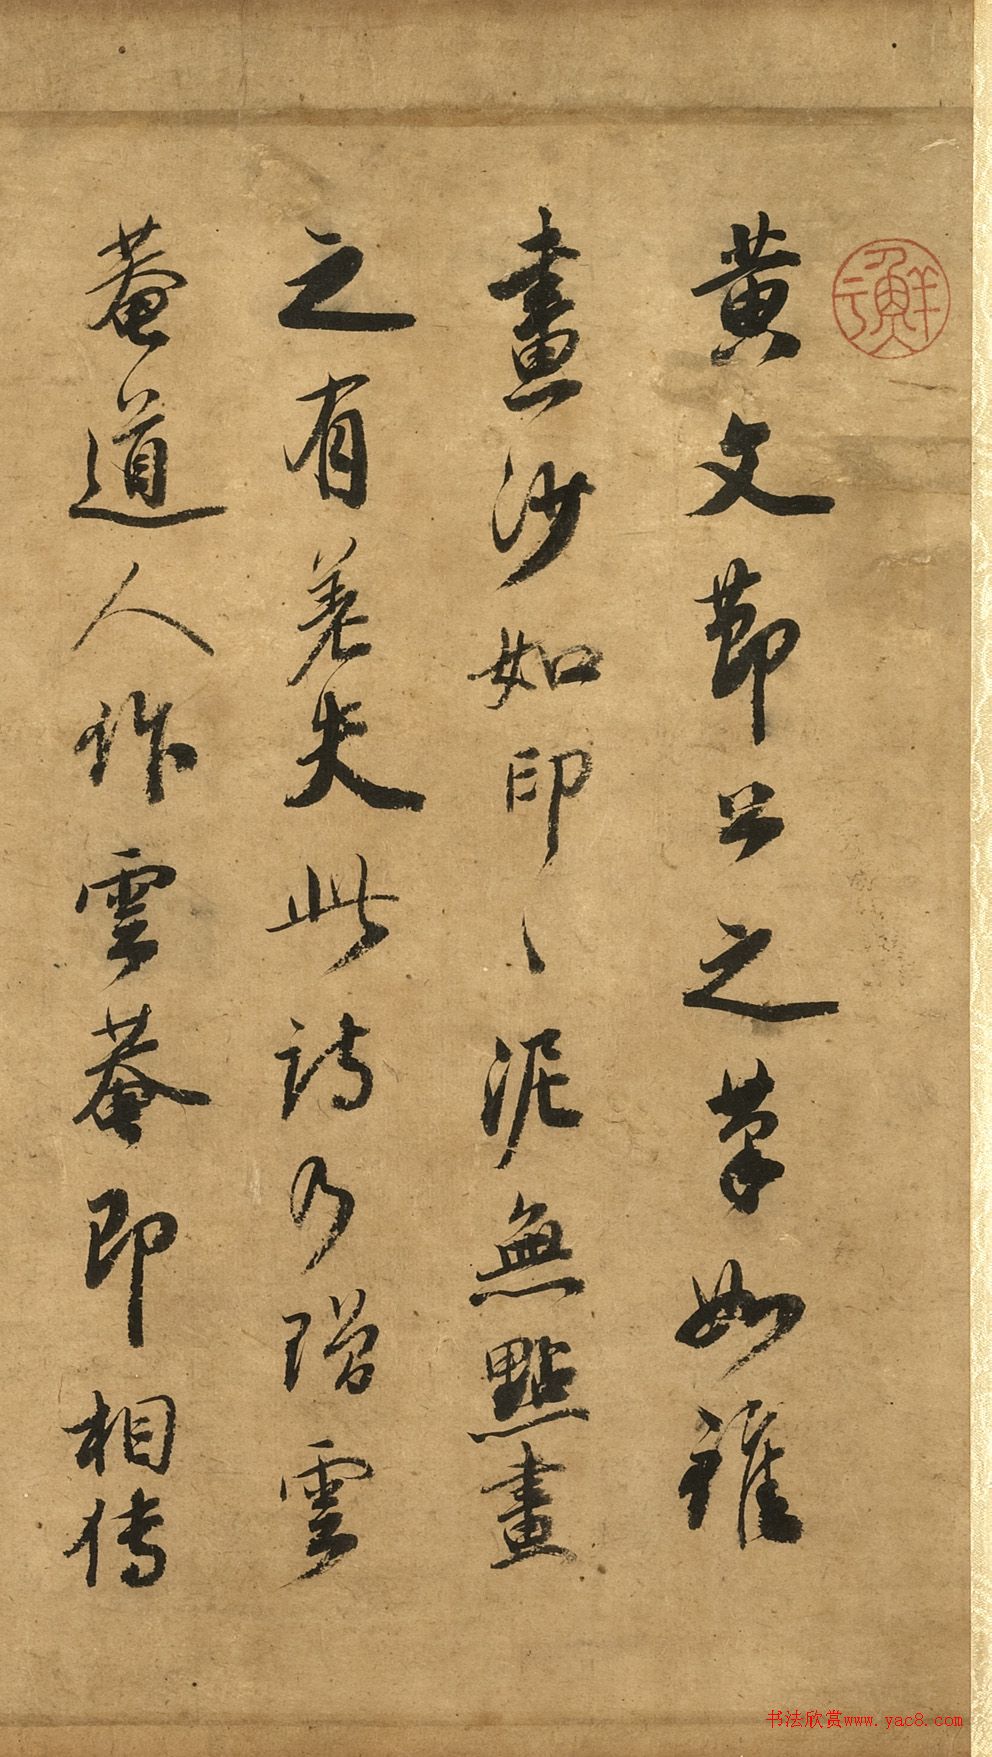 鮮于
黄文節公之筆如錐
畫沙如印〻泥無點畫
之有差失此詩乃贈雲
菴道人作雲菴即相傳
书法欣赏www.yac8.com